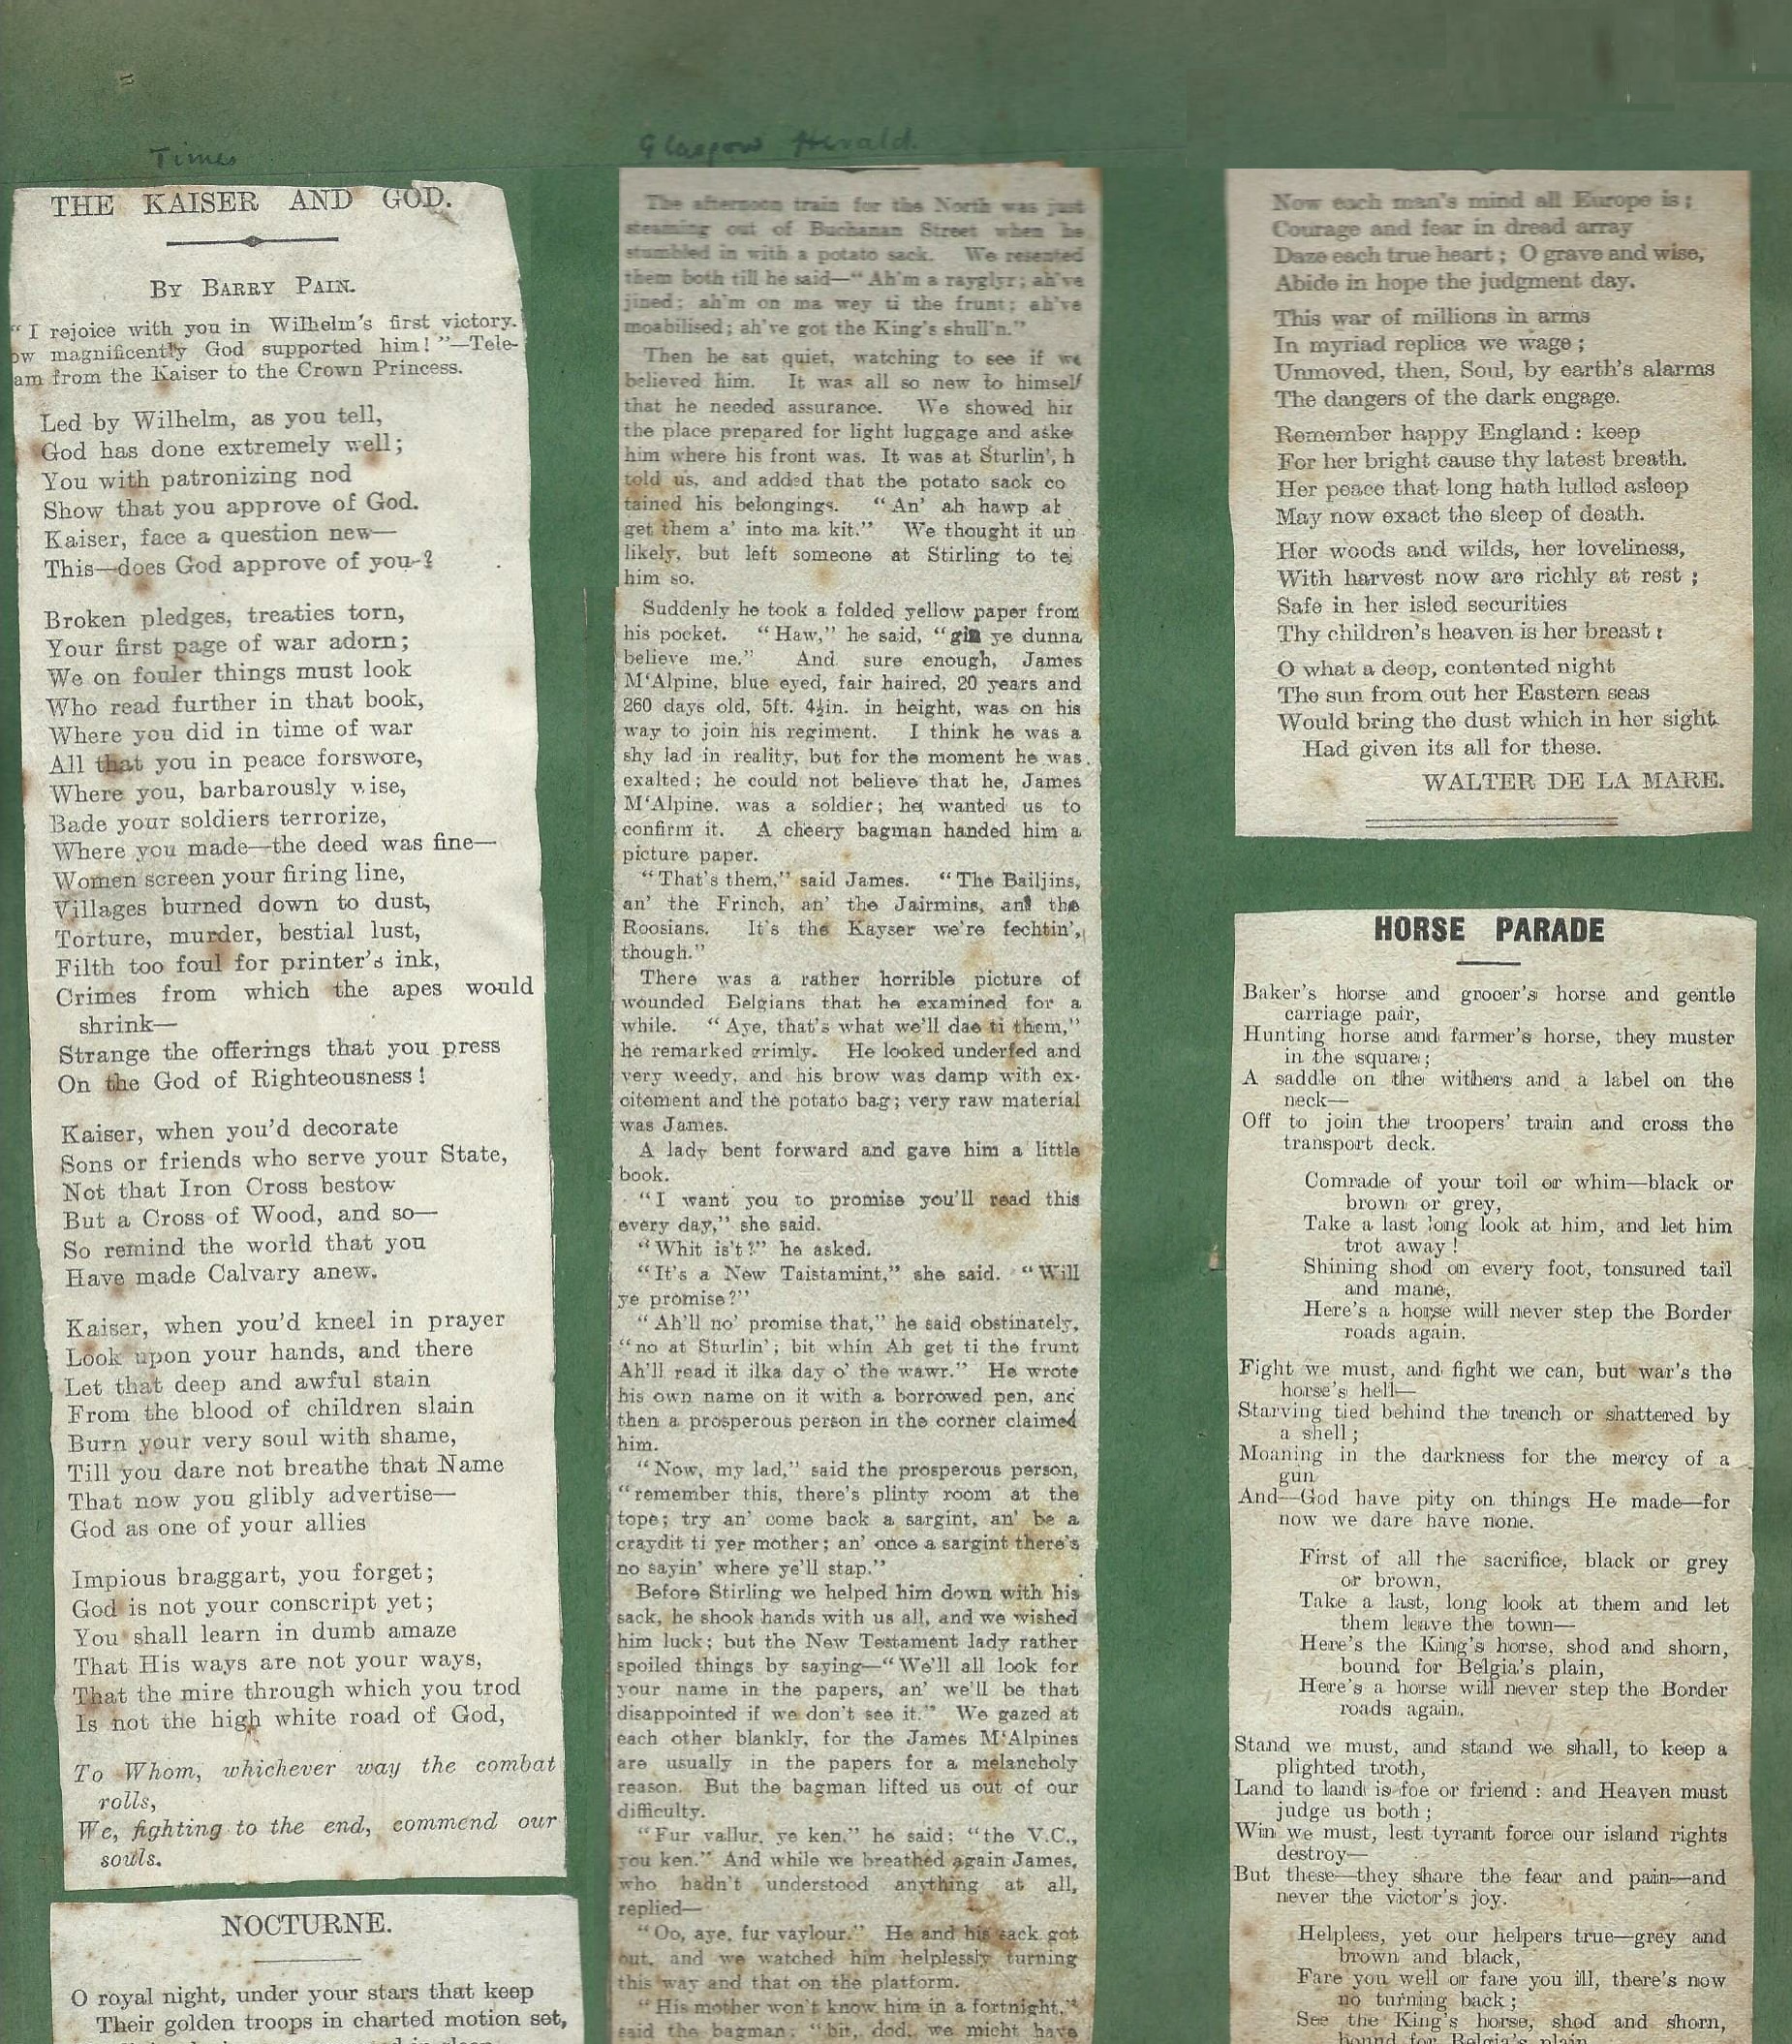 Times
THE KAISER AND GOD.
BY BARRY PAIN.
"I rejoice with you in Wilhelm's first victory.
ow magnificently God supported him!"—Tele-
am from the Kaiser to the Crown Princess.
Led by Wilhelm, as you tell,
God has done extremely well;
You with patronizing nod
Show that you approve of God.
Kaiser, face a question new—
This—does God approve of you?
Broken pledges, treaties torn,
Your first page of war adorn;
We on fouler things must look
Who read further in that book,
Where you did in time of war
All that you in peace forswore,
Where you, barbarously wise,
Bade your soldiers terrorize,
Where you made—the deed was fine—
Women screen your firing line,
Villages burned down to dust,
Torture, murder, bestial lust,
Filth too foul for printer's ink,
Crimes from which the apes would
shrink—
Strange the offerings that you press
On the God of Righteousness!
Kaiser, when you'd decorate
Sons or friends who serve your State,
Not that Iron Cross bestow
But a Cross of Wood, and so—
So remind the world that you
Have made Calvary anew.
Kaiser, when you'd kneel in prayer
Look upon your hands, and there
Let that deep and awful stain
From the blood of children slain
Burn your very soul with shame,
Till you dare not breathe that Name
That now you glibly advertise—
God as one of your allies
Impious braggart, you forget;
God is not your conscript yet;
You shall learn in dumb amaze
That His ways are not your ways,
That the mire through which you trod
Is not the high white road of God,
To Whom, whichever way the combat
rolls,
We, fighting to the end, commend our
souls.
NOCTURNE.
O royal night, under your stars that keep
Their golden troops in charted motion set,
Glasgow Herald.
The afternoon train for the North was just
steaming out of Buchanan Street when he
stumbled in with a potato sack. We resented
them both till he said—"Ah'm a rayglyr; ah've
jined; ah'm on ma wey ti the frunt; ah've
moabilised; ah've got the King's shull'n."
Then he sat quiet, watching to see if we
believed him. It was all so new to himself
that he needed assurance. We showed hir
the place prepared for light luggage and aske
him where his front was. It was at Sturlin', h
told us, and added that the potato sack co
tained his belongings. "An' ah hawp ah
get them a' into ma kit." We thought it un
likely, but left someone at Stirling to tel
him so.
Suddenly he took a folded yellow paper from
his pocket. "Haw," he said, "gin ye dunna
believe me." And sure enough, James
M'Alpine, blue eyed, fair haired, 20 years and
260 days old, 5ft. 4½in. in height, was on his
way to join his regiment. I think he was a
shy lad in reality, but for the moment he was
exalted; he could not believe that he, James
M'Alpine, was a soldier; he wanted us to
confirm it. A cheery bagman handed him a
picture paper.
"That's them," said James. "The Bailjins,
an' the Frinch, an' the Jairmins, an' the
Roosians. It's the Kayser we're fechtin',
though."
There was a rather horrible picture of
wounded Belgians that he examined for a
while. "Aye, that's what we'll dae ti them,"
he remarked grimly. He looked underfed and
very weedy, and his brow was damp with ex-
citement and the potato bag; very raw material
was James.
A lady bent forward and gave him a little
book.
"I want you to promise you'll read this
every day," she said.
"Whit is't?" he asked.
"It's a New Taistamint," she said. "Will
ye promise?"
"Ah'll no' promise that," he said obstinately,
"no at Sturlin'; bit whin Ah get ti the frunt
Ah'll read it ilka day o' the wawr." He wrote
his own name on it with a borrowed pen, and
then a prosperous person in the corner claimed
him.
"Now, my lad," said the prosperous person,
"remember this, there's plinty room at the
tope; try an' come back a sargint, an' be a
craydit ti yer mother; an' once a sargint there's
no sayin' where ye'll stap."
Before Stirling we helped him down with his
sack, he shook hands with us all, and we wished
him luck; but the New Testament lady rather
spoiled things by saying—"We'll all look for
your name in the papers, an' we'll be that
disappointed if we don't see it." We gazed at
each other blankly, for the James M'Alpines
are usually in the papers for a melancholy
reason. But the bagman lifted us out of our
difficulty.
"Fur vallur, ye ken," he said; "the V.C.,
you ken." And while we breathed again James,
who hadn't understood anything at all,
replied—
"Oo, aye, fur vaylour." He and his sack got
out, and we watched him helplessly turning
this way and that on the platform.
"His mother won't know him in a fortnight,"
said the bagman; "bit, dod, we micht have
Now each man's mind all Europe is;
Courage and fear in dread array
Daze each true heart; O grave and wise,
Abide in hope the judgment day.
This war of millions in arms
In myriad replica we wage;
Unmoved, then, Soul, by earth's alarms
The dangers of the dark engage.
Remember happy England: keep
For her bright cause thy latest breath.
Her peace that long hath lulled asleep
May now exact the sleep of death.
Her woods and wilds, her loveliness,
With harvest now are richly at rest;
Safe in her isled securities
Thy children's heaven is her breast:
O what a deep, contented night
The sun from out her Eastern seas
Would bring the dust which in her sight
Had given its all for these.
WALTER DE LA MARE.
HORSE PARADE
Baker's horse and grocer's horse and gentle
carriage pair,
Hunting horse and farmer's horse, they muster
in the square;
A saddle on the withers and a label on the
neck—
Off to join the troopers' train and cross the
transport deck.
Comrade of your toil or whim—black or
brown or grey,
Take a last long look at him, and let him
trot away!
Shining shod on every foot, tonsured tail
and mane,
Here's a horse will never step the Border
roads again.
Fight we must, and fight we can, but war's the
horse's hell—
Starving tied behind the trench or shattered by
a shell;
Moaning in the darkness for the mercy of a
gun
And—God have pity on things He made—for
now we dare have none.
First of all the sacrifice, black or grey
or brown,
Take a last, long look at them and let
them leave the town—
Here's the King's horse, shod and shorn,
bound for Belgia's plain,
Here's a horse will never step the Border
roads again.
Stand we must, and stand we shall, to keep a
plighted troth,
Land to land is foe or friend: and Heaven must
judge us both;
Win we must, lest tyrant force our island rights
destroy—
But these—they share the fear and pain—and
never the victor's joy.
Helpless, yet our helpers true—grey and
brown and black,
Fare you well or fare you ill, there's now
no turning back;
See the King's horse, shod and shorn,
bound for Belgia's plain